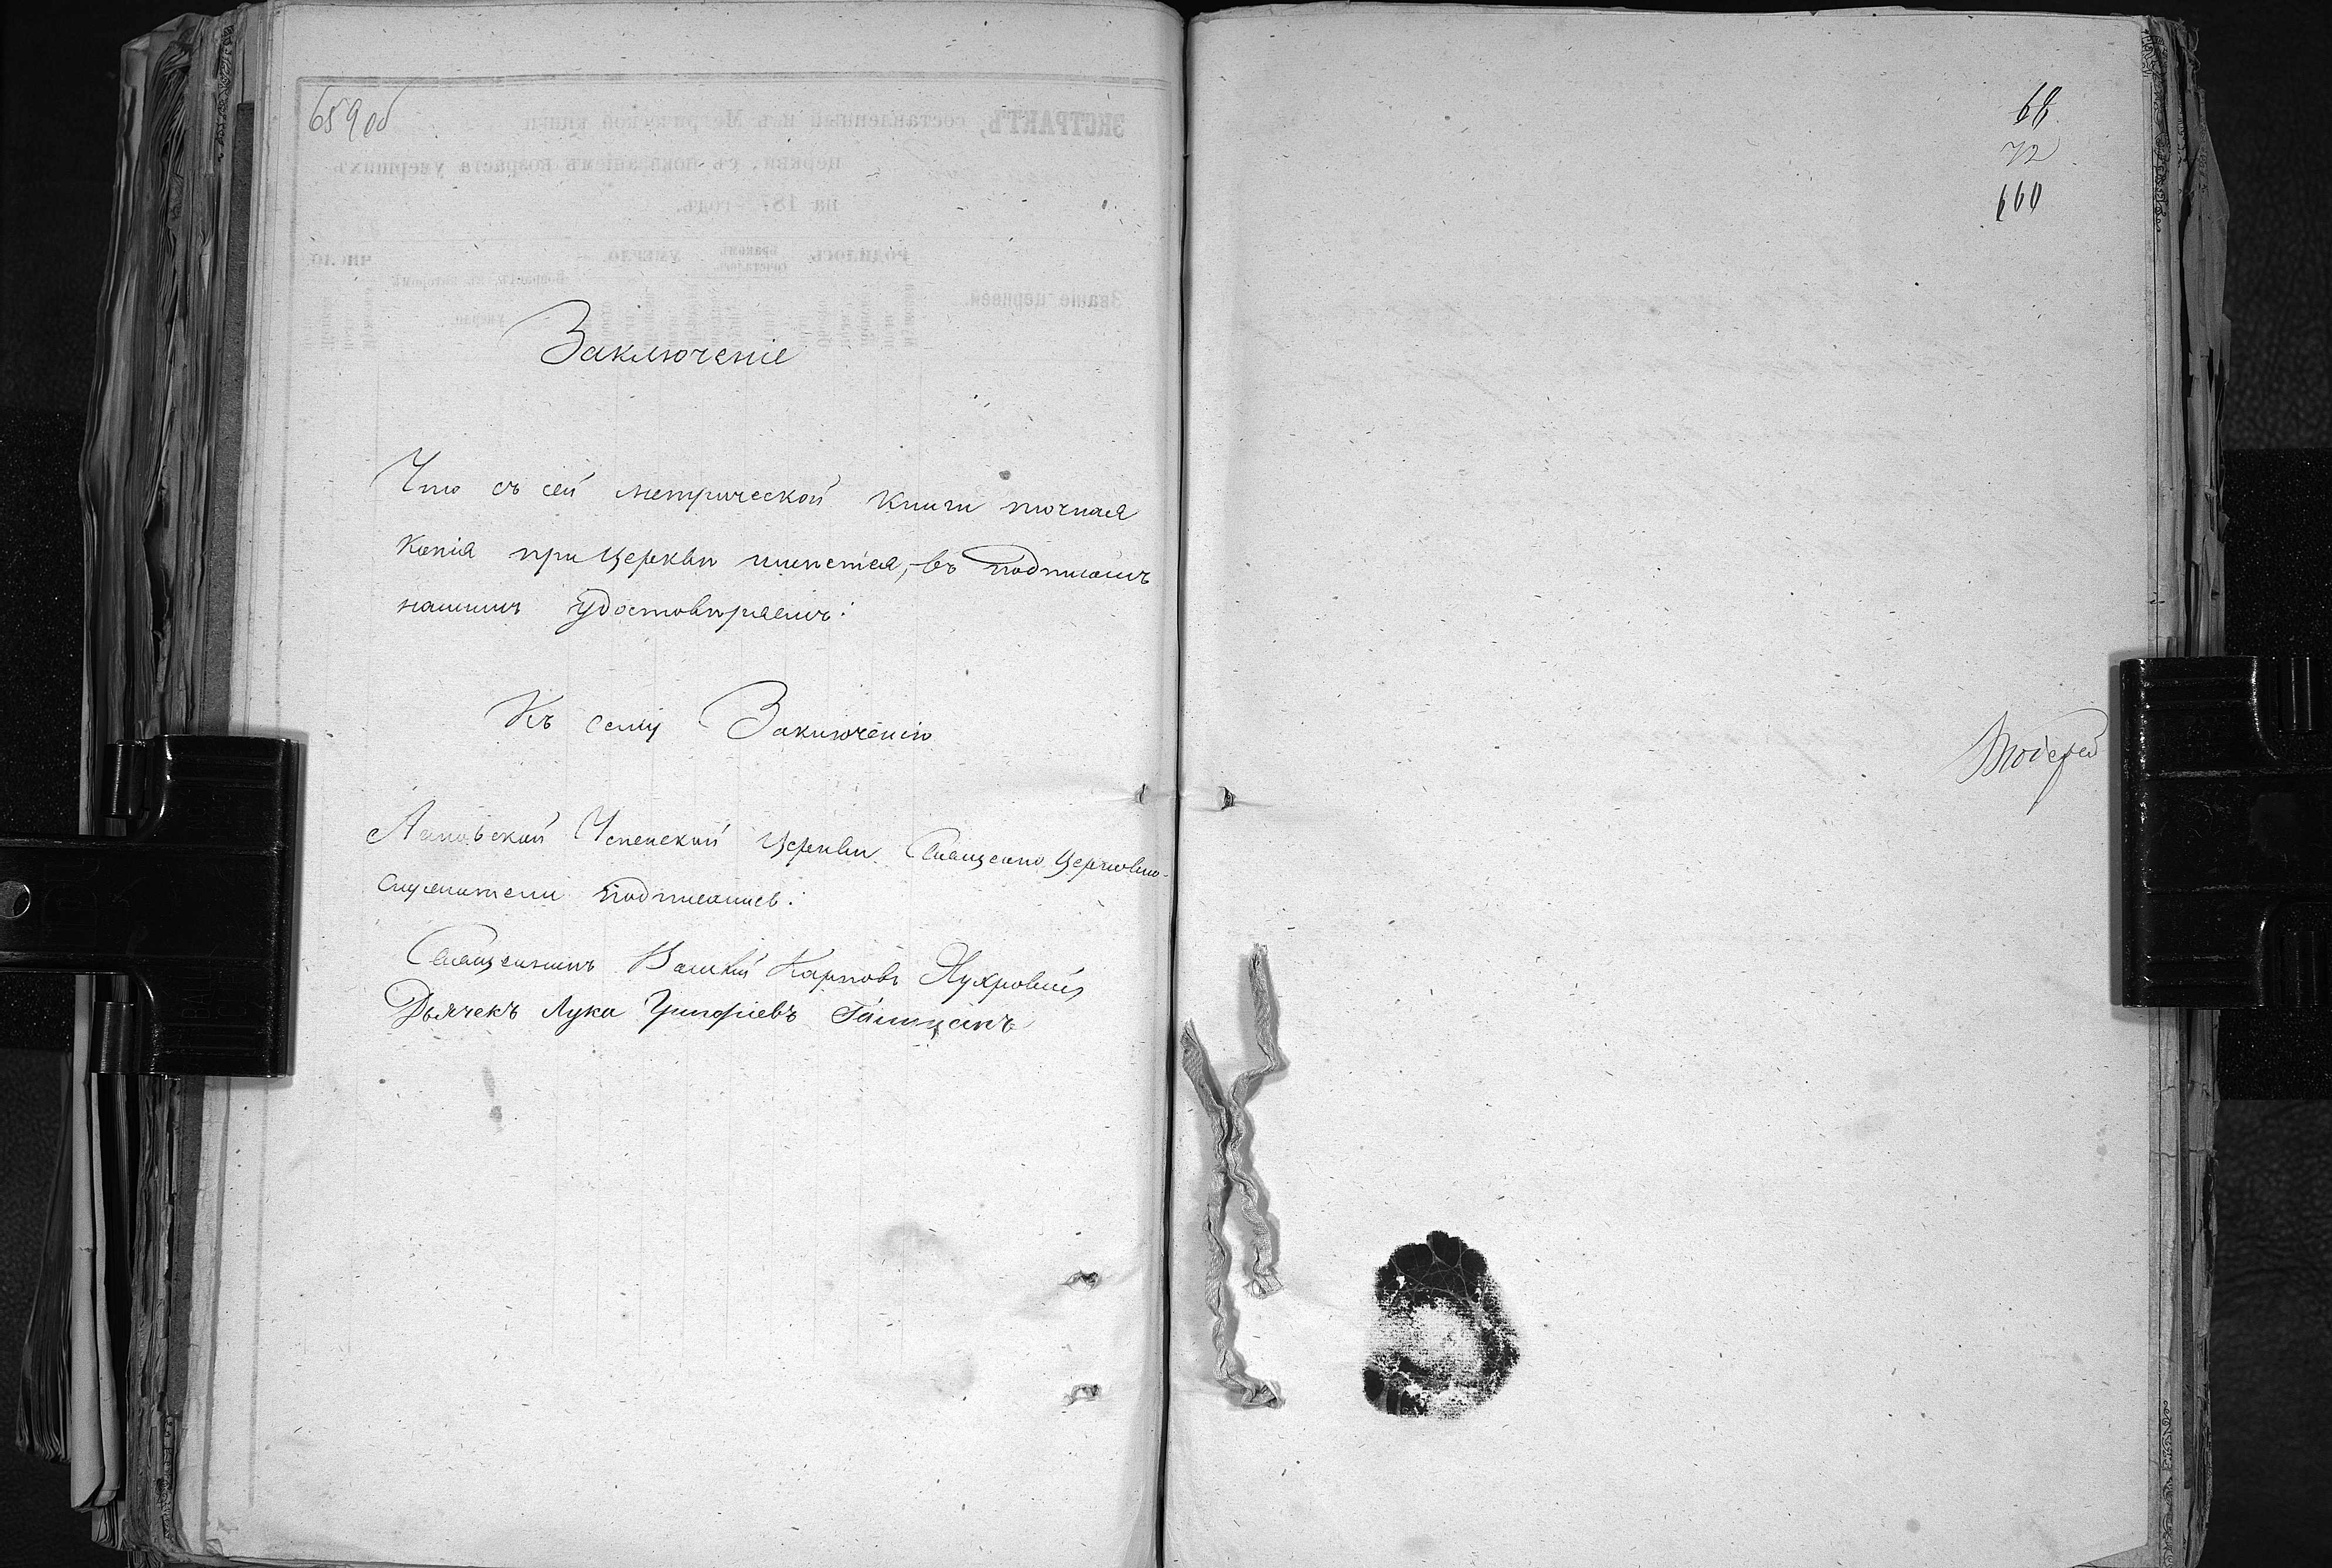 659 об
Заключеніе
Что съ сей метрической книги точная
копія при Церкви имѣется, въ подписомъ
нашимъ удостовѣряемъ:
Къ сему Заключенію
Успенской Церкви Священно Церковно-
служители подписались:
Священникъ Василій Карповъ
Дьячекъ Лука Григоріевъ
68
72
660